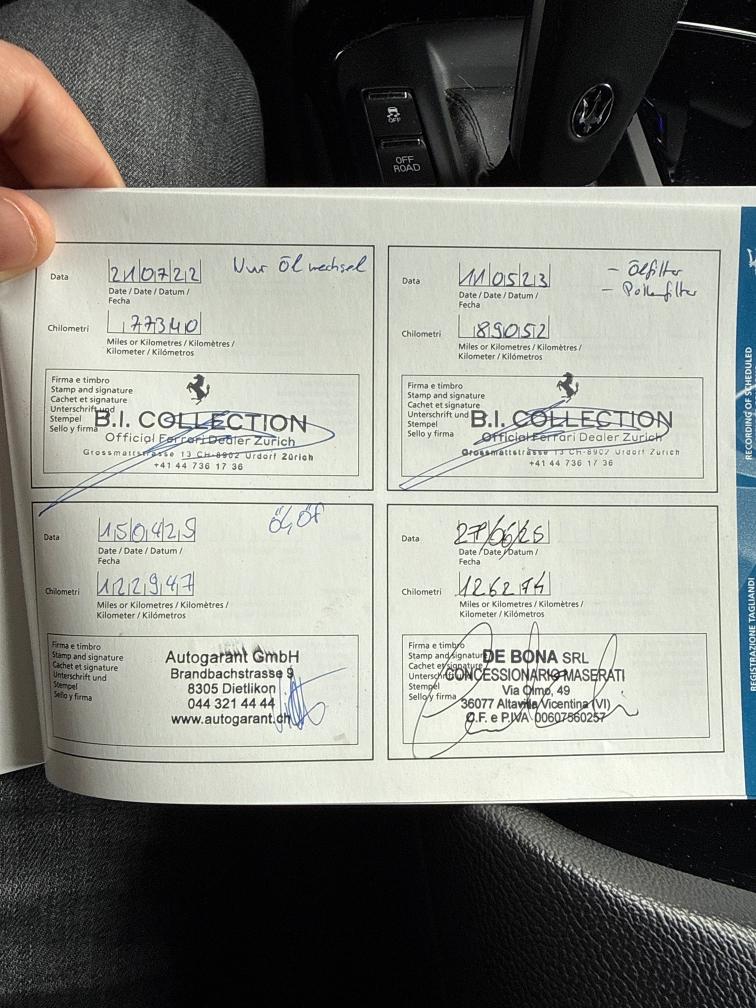 OFF
OFF
ROAD
Data 210722 Nur Ölwechsel
Date / Date / Datum /
Fecha
Chilometri 77340
Miles or Kilometres / Kilomètres /
Kilometer / Kilómetros
Firma e timbro
Stamp and signature
Cachet et signature
Unterschrift und
Stempel
Sello y firma
B.I. COLLECTION
Official Ferrari Dealer Zürich
Grossmattstrasse 13 CH-8902 Urdorf Zürich
+41 44 736 17 36
Data 110523 - Ölfilter
- Pollenfilter
Date / Date / Datum /
Fecha
Chilometri 89052
Miles or Kilometres / Kilomètres /
Kilometer / Kilómetros
Firma e timbro
Stamp and signature
Cachet et signature
Unterschrift und
Stempel
Sello y firma
B.I. COLLECTION
Official Ferrari Dealer Zürich
Grossmattstrasse 13 CH-8902 Urdorf Zürich
+41 44 736 17 36
Data 150425 Ö, ÖF
Date / Date / Datum /
Fecha
Chilometri 122947
Miles or Kilometres / Kilomètres /
Kilometer / Kilómetros
Firma e timbro
Stamp and signature
Cachet et signature
Unterschrift und
Stempel
Sello y firma
Autogarant GmbH
Brandbachstrasse 9
8305 Dietlikon
044 321 44 44
www.autogarant.ch
Data 27/06/25
Date / Date / Datum /
Fecha
Chilometri 126274
Miles or Kilometres / Kilomètres /
Kilometer / Kilómetros
Firma e timbro
Stamp and signature
Cachet et signature
Unterschrift und
Stempel
Sello y firma
DE BONA SRL
CONCESSIONARIO MASERATI
Via Olmo, 49
36077 Altavilla Vicentina (VI)
C.F. e P.IVA 00607560257
RECORDING OF SCHEDULED
REGISTRAZIONE TAGLIANDI